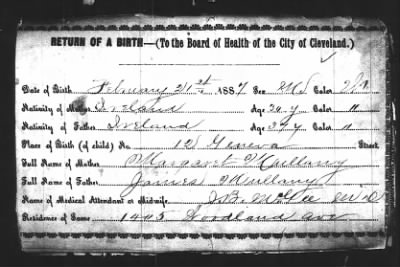 RETURN OF A BIRTH—(To the Board of Health of the City of Cleveland.)
Date of Birth February 21st 1887 Sex Color
Nativity of Mother Ireland Age 34 y Color "
Nativity of Father Ireland Age 37 y Color "
Place of Birth (of child) No. 12 Geneva Street
Full Name of Mother Margaret Mullany
Full Name of Father James Mullany
Name of Medical Attendant or Midwife. J.B. McGee M.D
Residence of Same 1405 Woodland ave